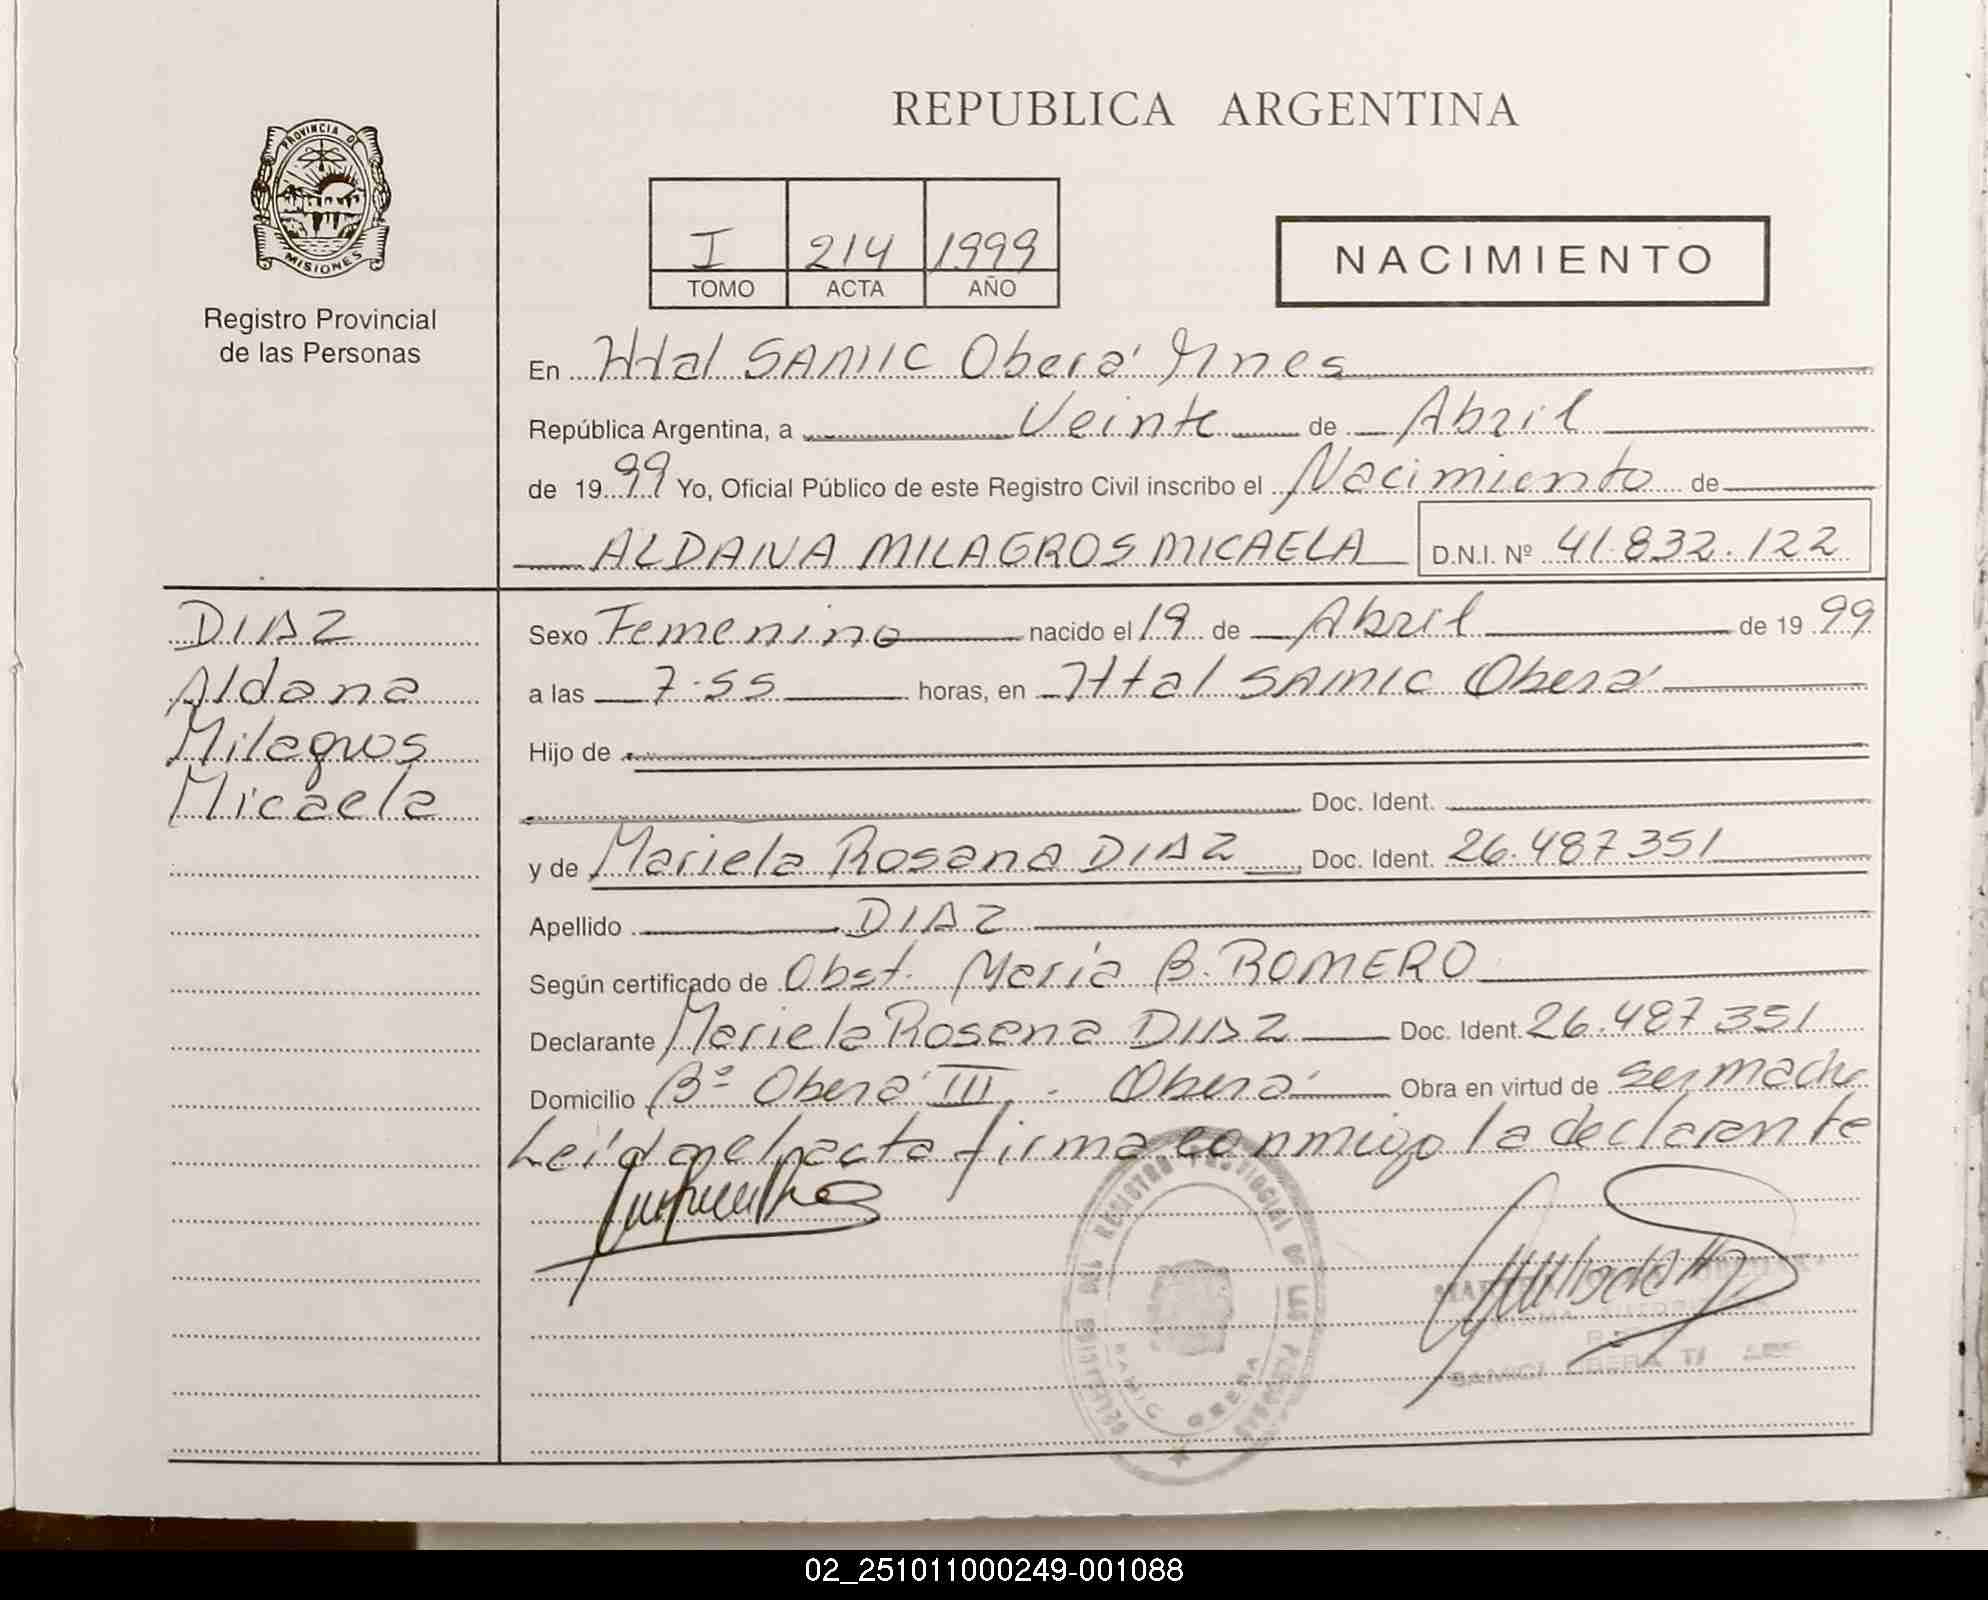 REPUBLICA ARGENTINA
PROVINCIA DE
MISIONES
Registro Provincial
de las Personas
I 214 1999
TOMO ACTA AÑO
NACIMIENTO
En Htal SAMIC Oberá Mnes
República Argentina, a Veinte de Abril
de 1999 Yo, Oficial Público de este Registro Civil inscribo el Nacimiento de
ALDANA MILAGROS MICAELA D.N.I. Nº 41.832.122
DIAZ
Aldana
Milagros
Micaela
Sexo Femenino nacido el 19 de Abril de 1999
a las 7.55 horas, en Htal SAMIC Oberá
Hijo de
Doc. Ident.
y de Mariela Rosana DIAZ Doc. Ident. 26.487351
Apellido DIAZ
Según certificado de Obst. María B. ROMERO
Declarante Mariela Rosana DIAZ Doc. Ident. 26.487351
Domicilio Bº Oberá III - Oberá Obra en virtud de ser madre
Leída el acta firma conmigo la declarante
REGISTRO PROVINCIAL DE LAS PERSONAS
SAMIC OBERA
02_251011000249-001088